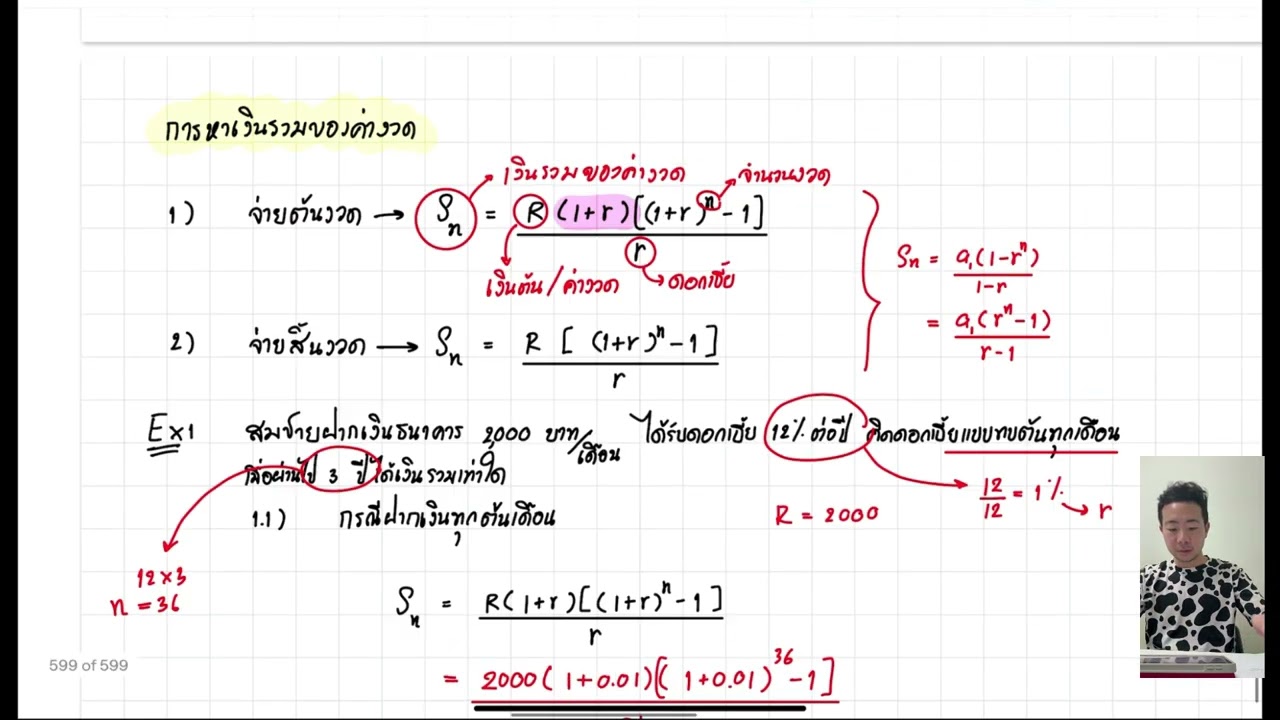 การหาเงินรวมของค่างวด
เงินรวมของค่างวด
จำนวนงวด
1) จ่ายต้นงวด → Sₙ = R (1+r)[(1+r)ⁿ - 1] / r
เงินต้น / ค่างวด
ดอกเบี้ย
Sₙ = a₁(1-rⁿ) / 1-r
= a₁(rⁿ-1) / r-1
2) จ่ายสิ้นงวด → Sₙ = R [ (1+r)ⁿ - 1 ] / r
Ex1 สมชายฝากเงินธนาคาร 2000 บาท/เดือน ได้รับดอกเบี้ย 12% ต่อปี คิดดอกเบี้ยแบบทบต้นทุกเดือน
เมื่อผ่านไป 3 ปี ได้เงินรวมเท่าใด
12/12 = 1% → r
1.1) กรณีฝากเงินทุกต้นเดือน
R = 2000
12×3
n = 36
Sₙ = R(1+r)[(1+r)ⁿ - 1] / r
= 2000(1+0.01)[(1+0.01)³⁶ - 1]
599 of 599